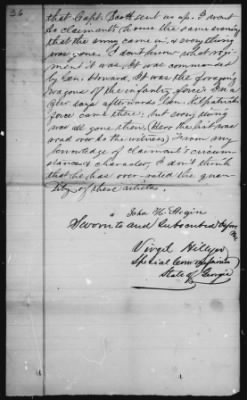 36
that Capt. Barth sent us up. I went
to claimants home the same evening
that the army came in, & every thing
was gone. I don't know what regi-
ment it was. It was commanded
by Gen. Howard. It was the foraging
wagons of the infantry force. In a
day afterwards Gen. Kilpatricks
force came there, but every thing
was all gone then. (Here the list was
read over to the witness) From my
knowledge of claimant's circum
stances & character, I don't think
that he has over-rated the quan-
tity of these articles.
John H. Elgin
Sworn to and Subscribed before me
Virgil Hillyer
Special Commissioner
State of Georgia